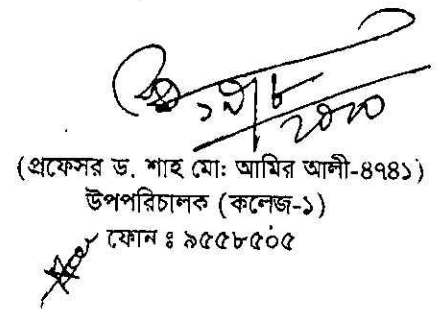 (প্রফেসর ড. শাহ মো: আমির আলী-৪৭৪১)
উপপরিচালক (কলেজ-১)
ফোন ঃ ৯৫৫৮৫০৫